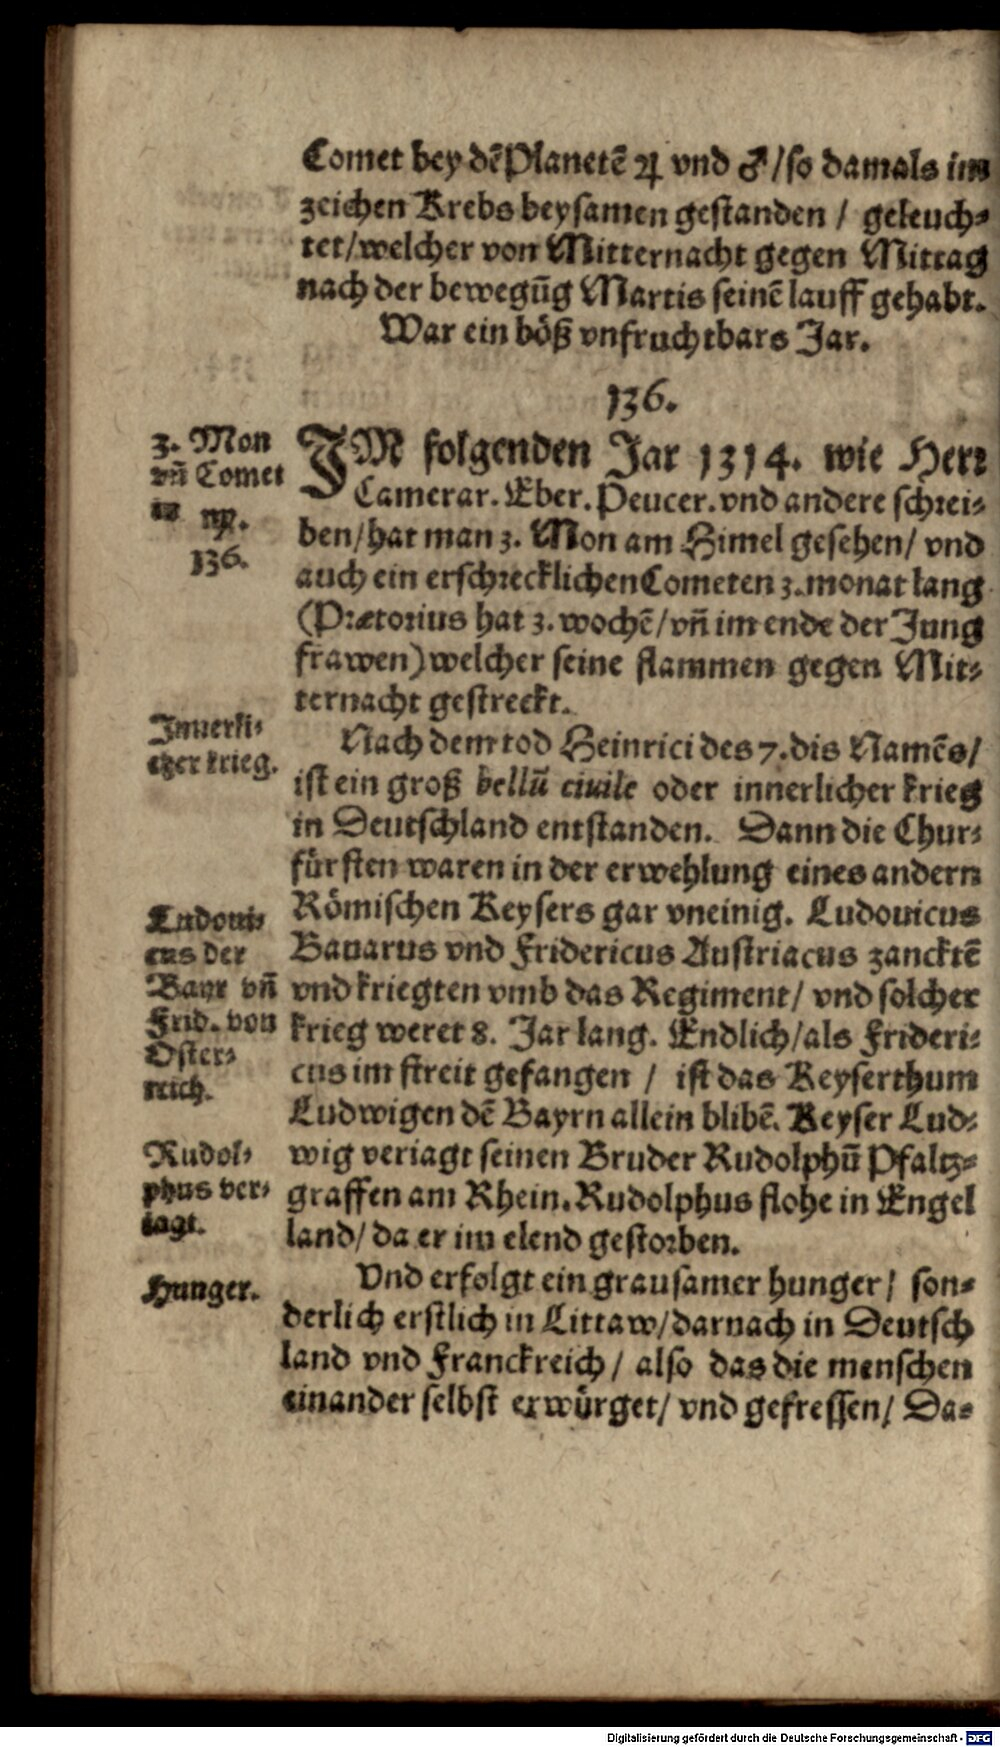 Comet bey dē Planetē ♃ vnd ♂/ so damals im
zeichen Krebs beysamen gestanden / geleuch⸗
tet/ welcher von Mitternacht gegen Mittag
nach der bewegūg Martis seinē lauff gehabt.
War ein böß vnfruchtbars Jar.
136.
3. Mon
vn̄ Comet
in ♍.
136.
IM folgenden Jar 1314. wie Herꝛ
Camerar. Eber. Peucer. vnd andere schrei⸗
ben/ hat man 3. Mon am Himel gesehen/ vnd
auch ein erschrecklichen Cometen 3. monat lang
(Prætorius hat 3. wochē/ vn̄ im ende der Jung
frawen) welcher seine flammen gegen Mit⸗
ternacht gestreckt.
Innerli⸗
cher krieg.
Nach dem tod Heinrici des 7. dis Namēs/
ist ein groß bellū ciuile oder innerlicher krieg
in Deutschland entstanden. Dann die Chur⸗
fürsten waren in der erwehlung eines andern
Römischen Keysers gar vneinig. Ludouicus
Bauarus vnd Fridericus Austriacus zancktē
vnd kriegten vmb das Regiment/ vnd solcher
krieg weret 8. Jar lang. Endlich/ als Frideri⸗
cus im streit gefangen / ist das Keyserthum
Ludwigen dē Bayrn allein blibē. Keyser Lud⸗
wig veriagt seinen Bruder Rudolphū Pfaltz⸗
graffen am Rhein. Rudolphus flohe in Engel
land/ da er im elend gestorben.
Ludoui⸗
cus der
Bayr vn̄
Frid. von
Oster⸗
reich.
Rudol⸗
phus ver⸗
iagt.
Hunger.
Vnd erfolgt ein grausamer hunger/ son⸗
derlich erstlich in Littaw/ darnach in Deutsch
land vnd Franckreich/ also das die menschen
einander selbst erwürget/ vnd gefressen/ Da⸗
Digitalisierung gefördert durch die Deutsche Forschungsgemeinschaft - DFG